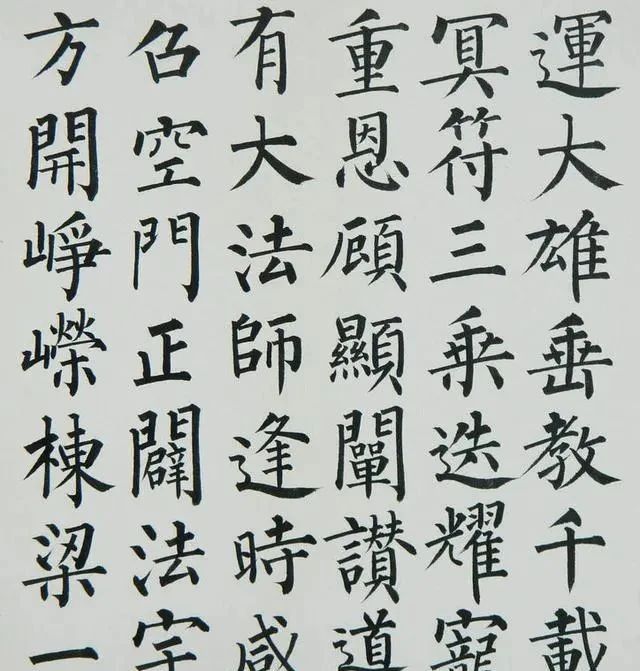 運大雄垂教千載
冥符三乗迭耀寵
重恩顧顯闡讚導
有大法師逢時感
召空門正闢法宇
方開崢嶸棟梁一